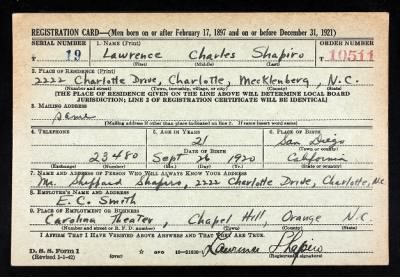 REGISTRATION CARD—(Men born on or after February 17, 1897 and on or before December 31, 1921)
SERIAL NUMBER 1. NAME (Print) ORDER NUMBER
T 19 Lawrence Charles Shapiro T 10511
(First) (Middle) (Last)
2. PLACE OF RESIDENCE (Print)
2222 Charlotte Drive, Charlotte, Mecklenberg, N.C.
(Number and street) (Town, township, village, or city) (County) (State)
[THE PLACE OF RESIDENCE GIVEN ON THE LINE ABOVE WILL DETERMINE LOCAL BOARD
JURISDICTION; LINE 2 OF REGISTRATION CERTIFICATE WILL BE IDENTICAL]
3. MAILING ADDRESS
same
[Mailing address if other than place indicated on line 2. If same insert word same]
4. TELEPHONE 5. AGE IN YEARS 6. PLACE OF BIRTH
21 San Diego
DATE OF BIRTH (Town or county)
23480 Sept 26 1920 California
(Exchange) (Number) (Mo.) (Day) (Yr.) (State or country)
7. NAME AND ADDRESS OF PERSON WHO WILL ALWAYS KNOW YOUR ADDRESS
Mr. Sheffard Shapiro, 2222 Charlotte Drive, Charlotte, N.C.
8. EMPLOYER'S NAME AND ADDRESS
E. C. Smith
9. PLACE OF EMPLOYMENT OR BUSINESS
Carolina Theater, Chapel Hill, Orange N.C.
(Number and street or R. F. D. number) (Town) (County) (State)
I AFFIRM THAT I HAVE VERIFIED ABOVE ANSWERS AND THAT THEY ARE TRUE.
D. S. S. Form 1
(Revised 1-1-42) (over) GPO Lawrence Shapiro
(Registrant's signature)